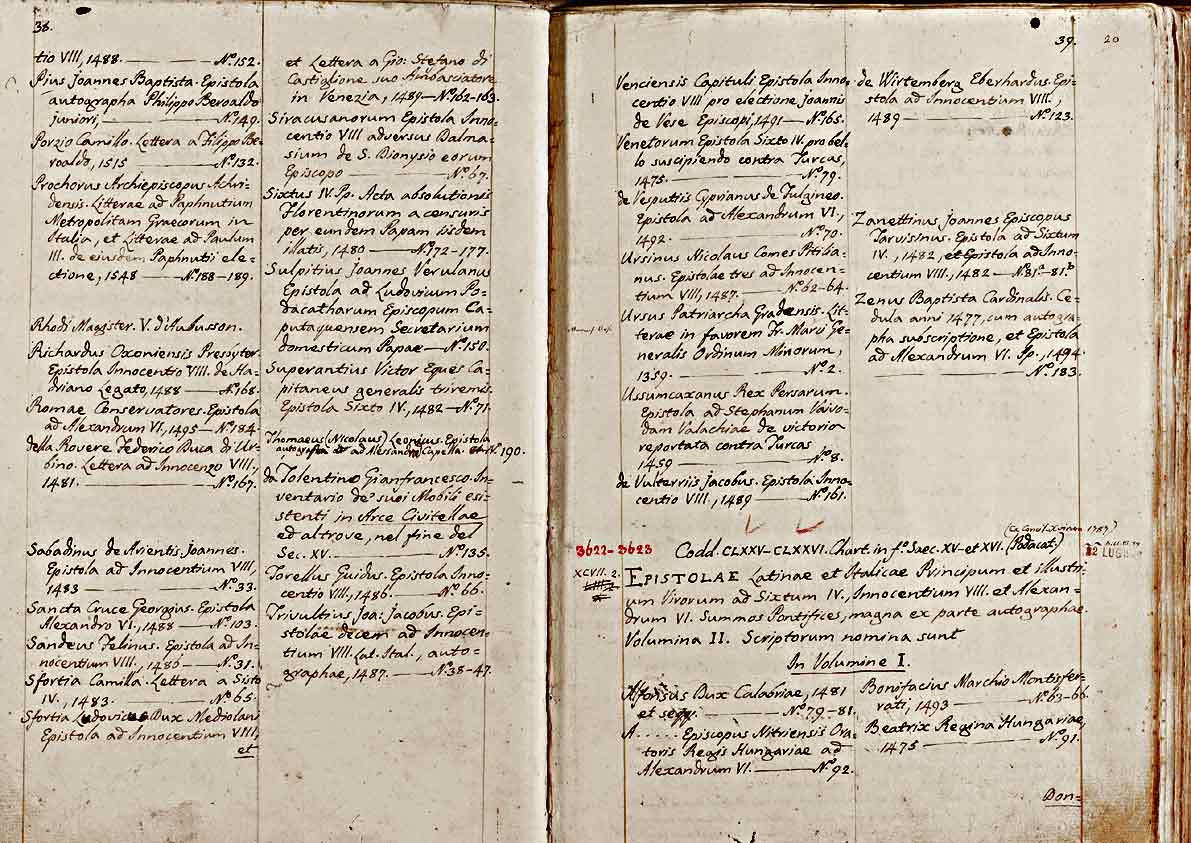 38.
tio VIII, 1488. — Nº. 152.
Pius Joannes Baptista. Epistola
autographa Philippo Beroaldo
juniori, — Nº. 149.
Porzio Camillo. Lettera a Filippo Be-
roaldo, 1515 — Nº. 132.
Prochorus Archiepiscopus Achri-
densis. Litterae ad Paphnutium
Metropolitam Graecorum in
Italia, et Litterae ad Paulum
III. de eiusdem Paphnutii ele-
ctione, 1548 — Nº. 188-189.
Rhodi Magister. V. d'Aubusson.
Richardus Oxoniensis Presbyter.
Epistola Innocentio VIII. de Ha-
driano Legato, 1488 — Nº. 168.
Romae Conservatores. Epistola
ad Alexandrum VI, 1495 — Nº. 184.
della Rovere Federico Duca di Ur-
bino. Lettera ad Innocenzo VIII.,
1481. — Nº. 167.
Sabadinus de Arientis Joannes.
Epistola ad Innocentium VIII,
1483 — Nº. 33.
Sancta Cruce Georgius. Epistola
Alexandro VI., 1488 — Nº. 103.
Sandeus Felinus. Epistola ad In-
nocentium VIII., 1486 — Nº. 31.
Sfortia Camilla. Lettera a Sisto
IV., 1483. — Nº. 65.
Sfortia Ludovicus Dux Mediolani
Epistola ad Innocentium VIII,
et
et Lettera a Gio: Stefano di
Castiglione suo Ambasciatore
in Venezia, 1489 — Nº. 162-163.
Siracusanorum Epistola Inno-
centio VIII adversus Dalma-
sium de S. Dionysio eorum
Episcopo — Nº. 67.
Sixtus IV. Pp. Acta absolutionis
Florentinorum a censuris
per eundem Papam iisdem
illatis, 1480 — Nº. 172-177.
Sulpitius Joannes Verulanus
Epistola ad Ludovicum Po-
dacatharum Episcopum Ca-
putaquensem Secretarium
domesticum Papae — Nº. 150.
Superantius Victor Eques Ca-
pitaneus generalis triremis.
Epistola Sixto IV., 1482 — Nº. 71.
Thomaeus (Nicolaus) Leonicus. Epistola
autografa ad Alesandro Capella. Nº. 190.
da Tolentino Gianfrancesco. In-
ventario de' suoi Mobili esi-
stenti in Arce Civitellae
ed altrove, nel fine del
Sec. XV. — Nº. 135.
Torellus Guidus. Epistola Inno-
centio VIII, 1486. — Nº. 66.
Trivultius Joa: Jacobus. Epi-
stolae decem ad Innocen-
tium VIII. Lat. Ital., auto-
graphae, 1487. — Nº. 38-47.
39. 20
Venciensis Capituli Epistola Inno-
centio VIII pro electione Joannis
de Vese Episcopi, 1491 — Nº. 165.
Venetorum Epistola Sixto IV. pro bel-
lo suscipiendo contra Turcas,
1475. — Nº. 79.
de Vesputiis Cyprianus de Fulgineo.
Epistola ad Alexandrum VI.,
1492. — Nº. 70.
Ursinus Nicolaus Comes Pitilia-
nus. Epistolae tres ad Innocen-
tium VIII, 1487. — Nº. 62-64.
Ursus Patriarcha Gradensis. Lit-
terae in favorem Fr. Marci Ge-
neralis Ordinum Minorum,
1359. — Nº. 2.
Ussumcaxanus Rex Persarum.
Epistola ad Stephanum Vaivo-
dam Valachiae de victoria
reportata contra Turcas
1459 — Nº. 8.
de Vulterriis Jacobus. Epistola Inno-
centio VIII., 1489 — Nº. 161.
de Wirtemberg Eberhardus. Epi-
stola ad Innocentium VIII.,
1489 — Nº. 123.
Zanettinus Joannes Episcopus
Tarvisinus. Epistola ad Sixtum
IV., 1482, et Epistola ad Inno-
centium VIII., 1482 — Nº. 81ª-81ᵇ
Zenus Baptista Cardinalis. Ce-
dula anni 1477, cum autogra-
pha subscriptione, et Epistola
ad Alexandrum VI. Pp., 1494
— Nº. 183.
3622-3623 Codd. CLXXV-CLXXVI. Chart. in fº. Saec. XV. et XVI. (Podacat.)
XCVII. 2.
EPISTOLAE Latinae et Italicae Principum et illustri-
um Virorum ad Sixtum IV., Innocentium VIII. et Alexan-
drum VI. Summos Pontifices, magna ex parte autographae.
Volumina II. Scriptorum nomina sunt
In Volumine I.
Alfonsus Dux Calabriae, 1481
et seqq. — Nº. 79-81.
A..... Episcopus Nitriensis Ora-
toris Regis Hungariae ad
Alexandrum VI. — Nº. 92.
Bonifacius Marchio Montisfer-
rati, 1493 — Nº. 63-66.
Beatrix Regina Hungariae,
1475 — Nº. 91.
Don=